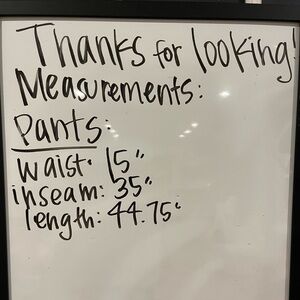 Thanks for looking!
Measurements:
Pants:
waist: 15"
inseam: 35"
length: 44.75"